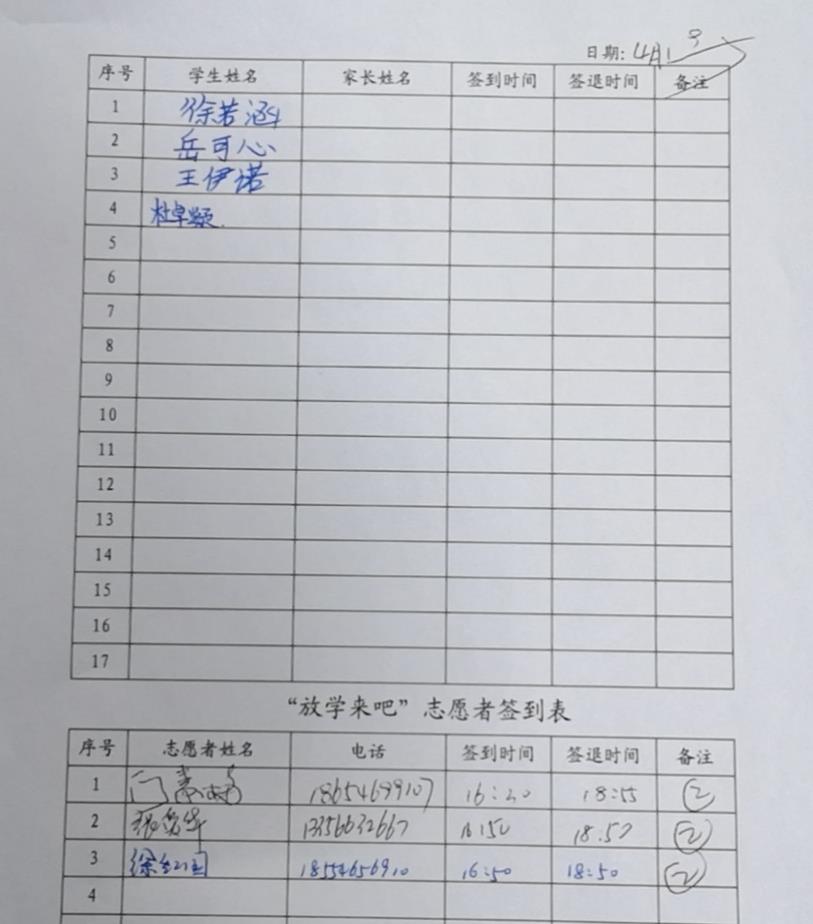 日期: 4月1号
序号 学生姓名 家长姓名 签到时间 签退时间 备注
1 徐若涵
2 岳可心
3 王伊诺
4 杜卓颖
5
6
7
8
9
10
11
12
13
14
15
16
17
“放学来吧”志愿者签到表
序号 志愿者姓名 电话 签到时间 签退时间 备注
1 18654699107 16:20 18:55 ②
2 13356632667 16:50 18:57 ②
3 18554656910 16:50 18:50 ②
4